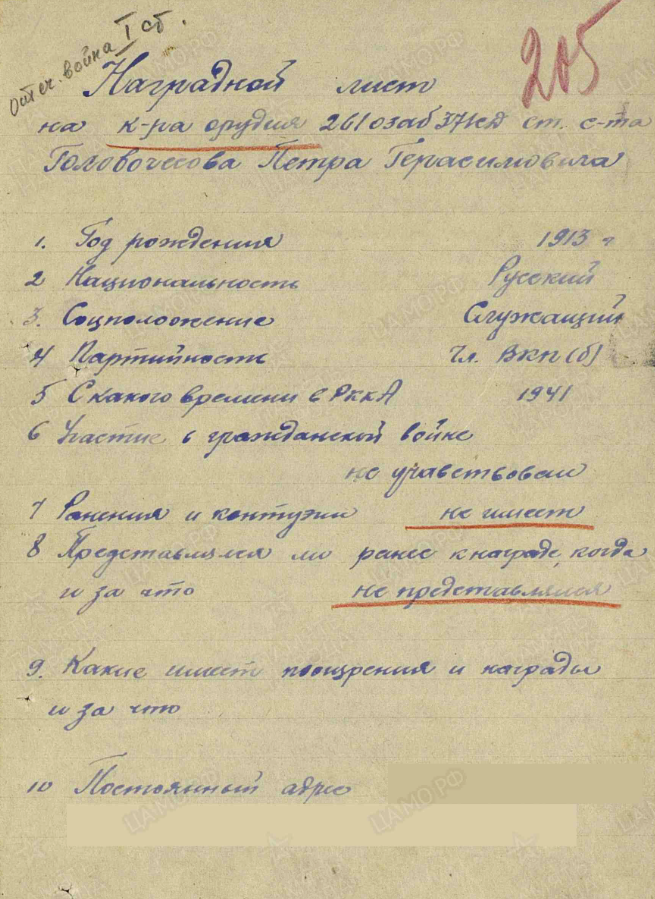 Отеч. война I ст.
205
Наградной лист
на к-ра орудия 261 озаб 37 ст. с-та
Головочесова Петра Герасимовича
1. Год рождения 1913 г
2 Национальность Русский
3. Соцположение Служащий
4 Партийность Чл. ВКП(б)
5 С какого времени в РККА 1941
6 Участие в гражданской войне
не учавствовал
7 Ранения и контузии не имеет
8 Представлялся ли ранее к награде, когда
и за что не представлялся
9. Какие имеет поощрения и награды
и за что
10 Постоянный адрес
ЦАМО.РФ